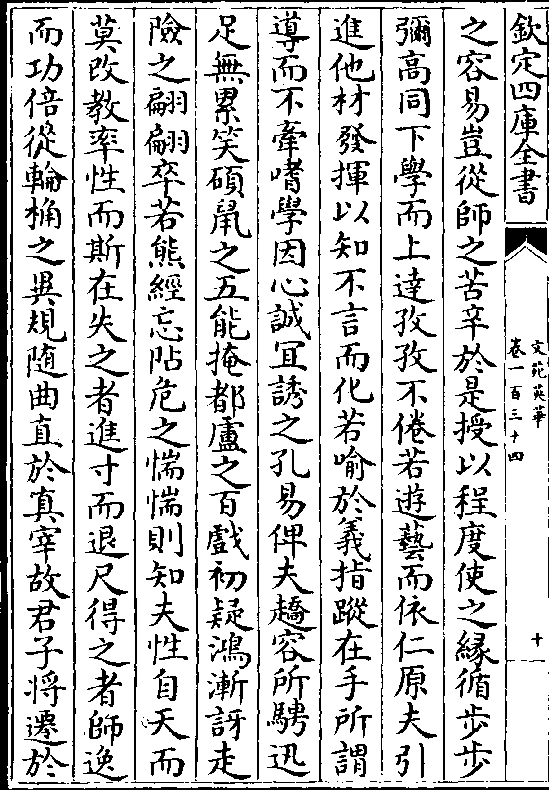 欽定四庫全書
文苑英華
卷一百三十四
十
之容易豈從師之苦辛於是授以程度使之緣循步步
彌高同下學而上達孜孜不倦若遊藝而依仁原夫引
進他材發揮以知不言而化若喻於義指蹤在手所謂
導而不牽嗜學因心誠冝誘之孔易俾夫趫容所騁迅
足無累笑碩鼠之五能掩都盧之百戲初疑鴻漸訝走
險之翩翩卒若熊經忘阽危之惴惴則知夫性自天而
莫改教率性而斯在失之者進寸而退尺得之者師逸
而功倍從輪桷之異規随曲直於真宰故君子將遷於